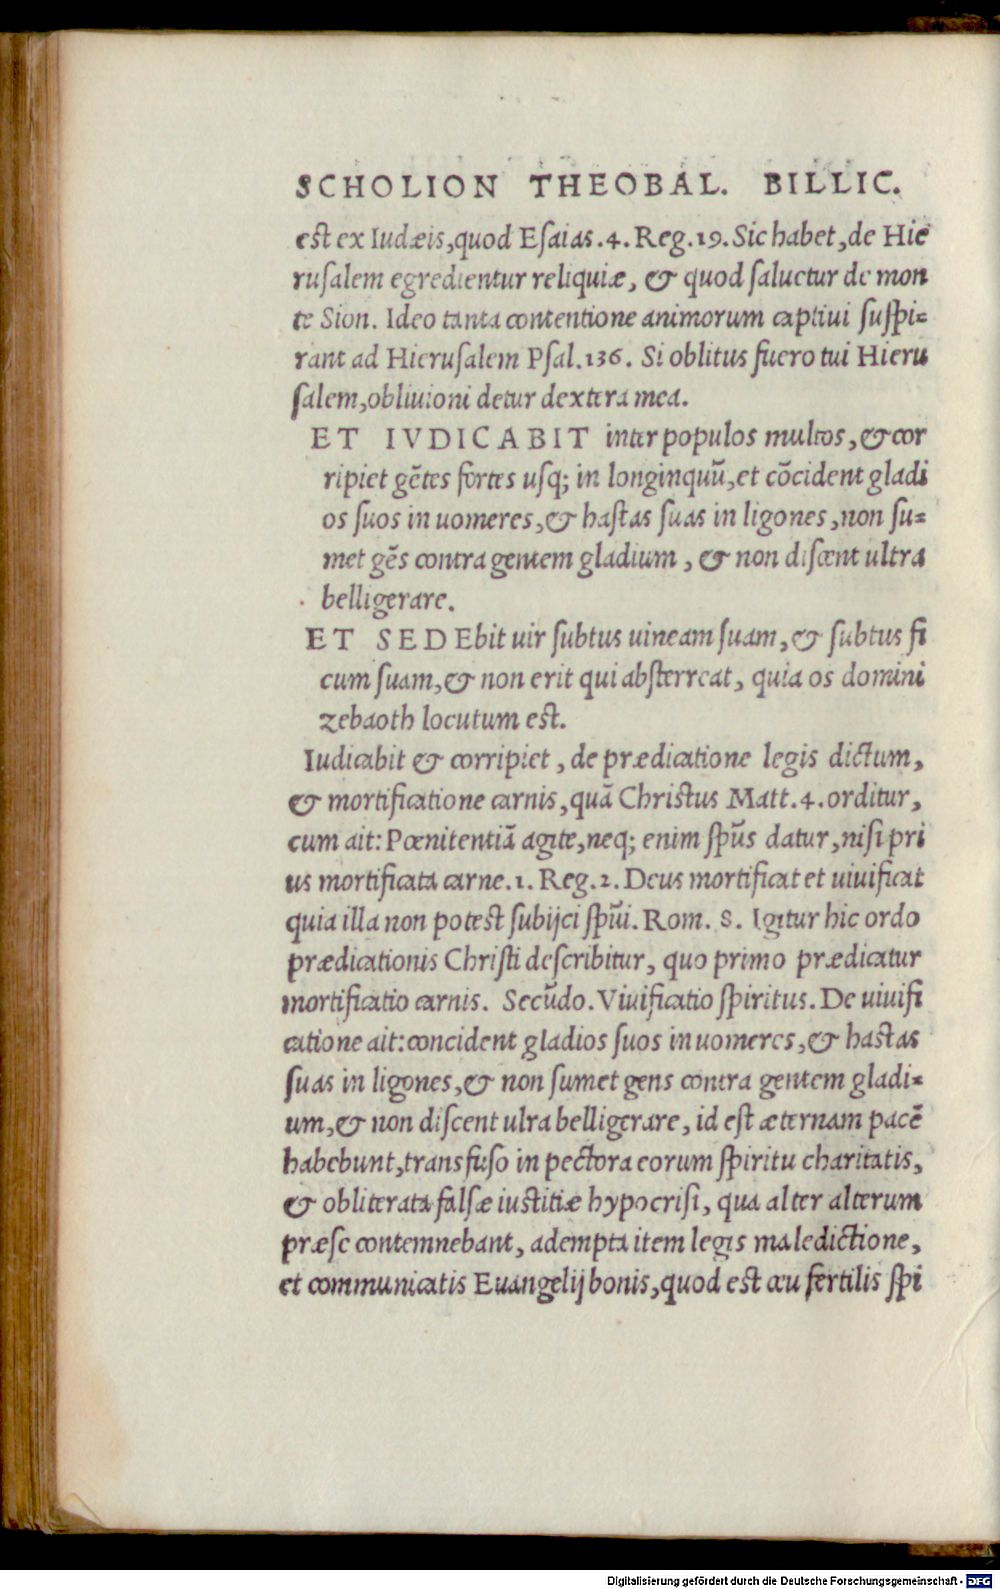 SCHOLION THEOBAL. BILLIC.
est ex Iudæis,quod Esaias.4.Reg.19.Sic habet,de Hie
rusalem egredientur reliquiæ, & quod saluetur de mon
te Sion. Ideo tanta contentione animorum captiui suspi=
rant ad Hierusalem Psal.136. Si oblitus fuero tui Hieru
salem,obliuioni detur dextera mea.
ET IVDICABIT inter populos multos,&cor
ripiet gētes fortes usq; in longinquū,et cōcident gladi
os suos in uomeres,& hastas suas in ligones,non su=
met gēs contra gentem gladium, & non discent ultra
belligerare.
ET SEDEbit uir subtus uineam suam,& subtus fi
cum suam,& non erit qui absterreat, quia os domini
zebaoth locutum est.
Iudicabit & corripiet, de prædicatione legis dictum,
& mortificatione carnis,quā Christus Matt.4.orditur,
cum ait: Pœnitentiā agite,neq; enim spūs datur,nisi pri
us mortificata carne.1.Reg.2.Deus mortificat et uiuificat
quia illa non potest subijci spūi.Rom. 8. Igitur hic ordo
prædicationis Christi describitur, quo primo prædicatur
mortificatio carnis. Secūdo.Viuificatio spiritus.De uiuifi
catione ait:concident gladios suos in uomeres,& hastas
suas in ligones,& non sumet gens contra gentem gladi=
um,& non discent ulra belligerare, id est æternam pacē
habebunt,transfuso in pectora eorum spiritu charitatis,
& obliterata falsæ iustitiæ hypocrisi, qua alter alterum
præse contemnebant, adempta item legis maledictione,
et communicatis Euangelij bonis,quod est ceu fertilis spi
Digitalisierung gefördert durch die Deutsche Forschungsgemeinschaft - DFG